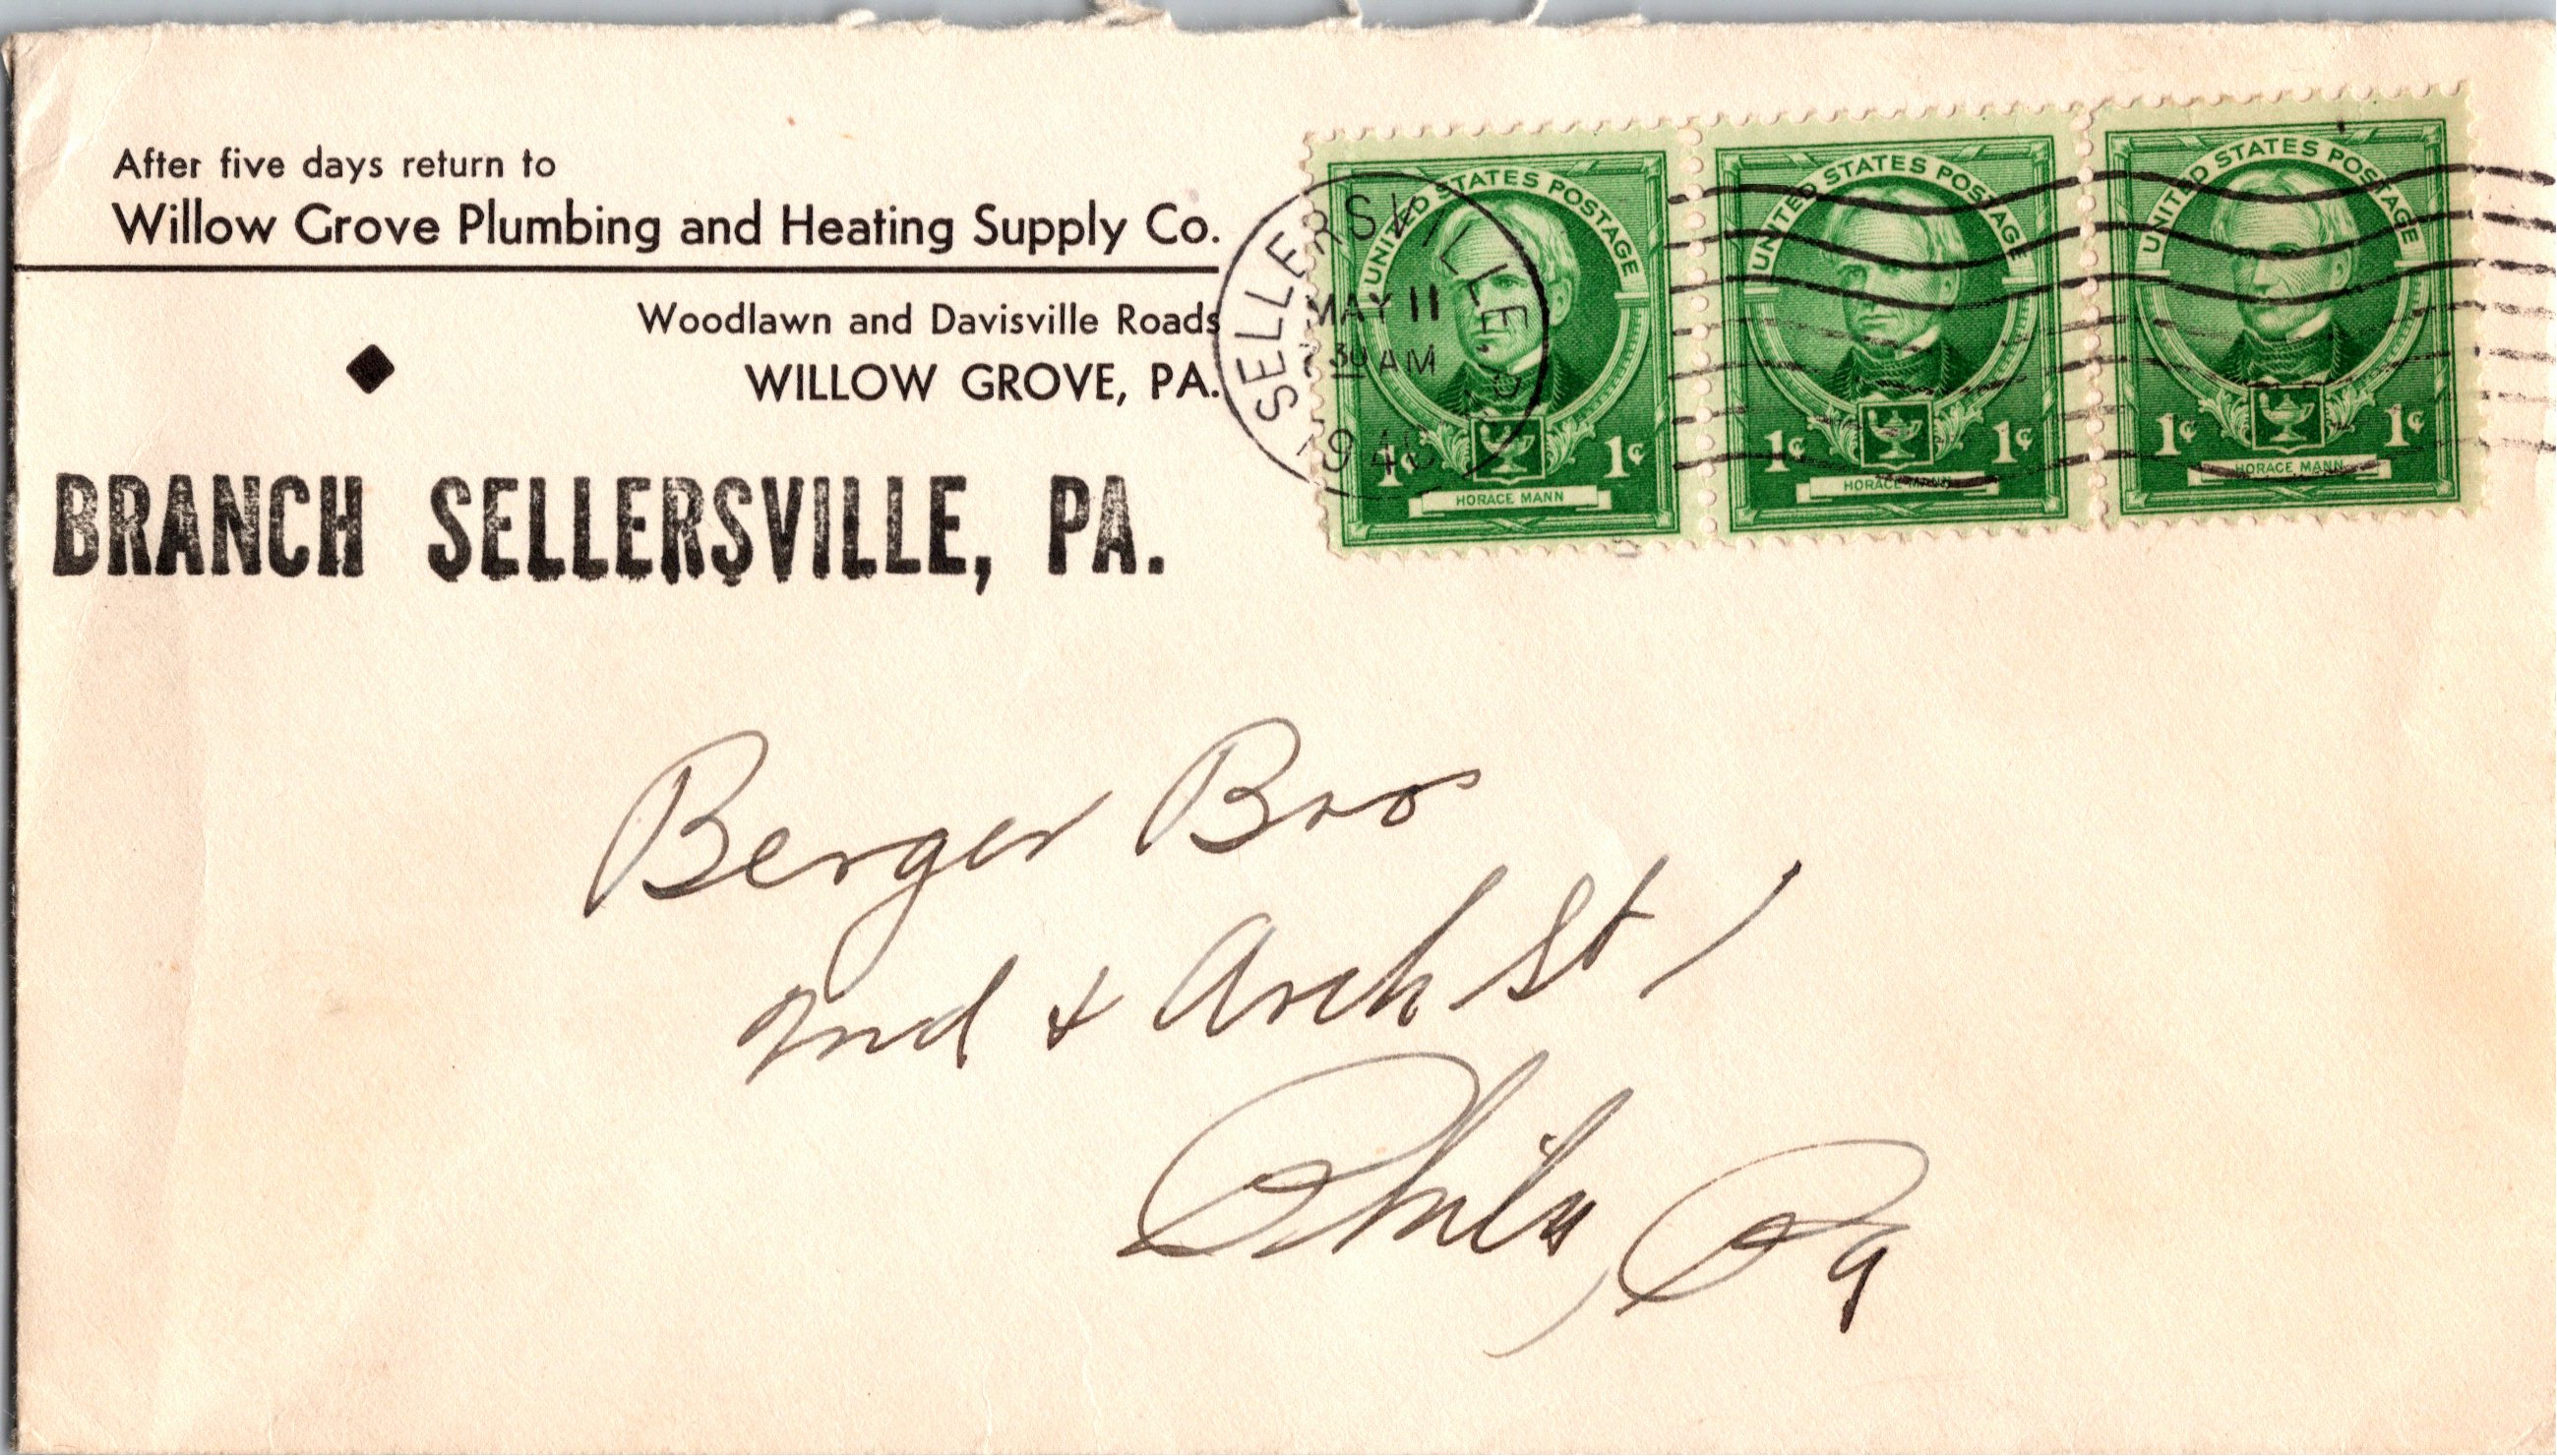 After five days return to
Willow Grove Plumbing and Heating Supply Co.
Woodlawn and Davisville Roads
WILLOW GROVE, PA.
BRANCH SELLERSVILLE, PA.
SELLERSVILLE, P
MAY 11
30 AM
1940
UNITED STATES POSTAGE
1¢ 1¢
HORACE MANN
UNITED STATES POSTAGE
1¢ 1¢
HORACE MANN
UNITED STATES POSTAGE
1¢ 1¢
HORACE MANN
Berger Bros
2nd & Arch St,
Phila, Pa